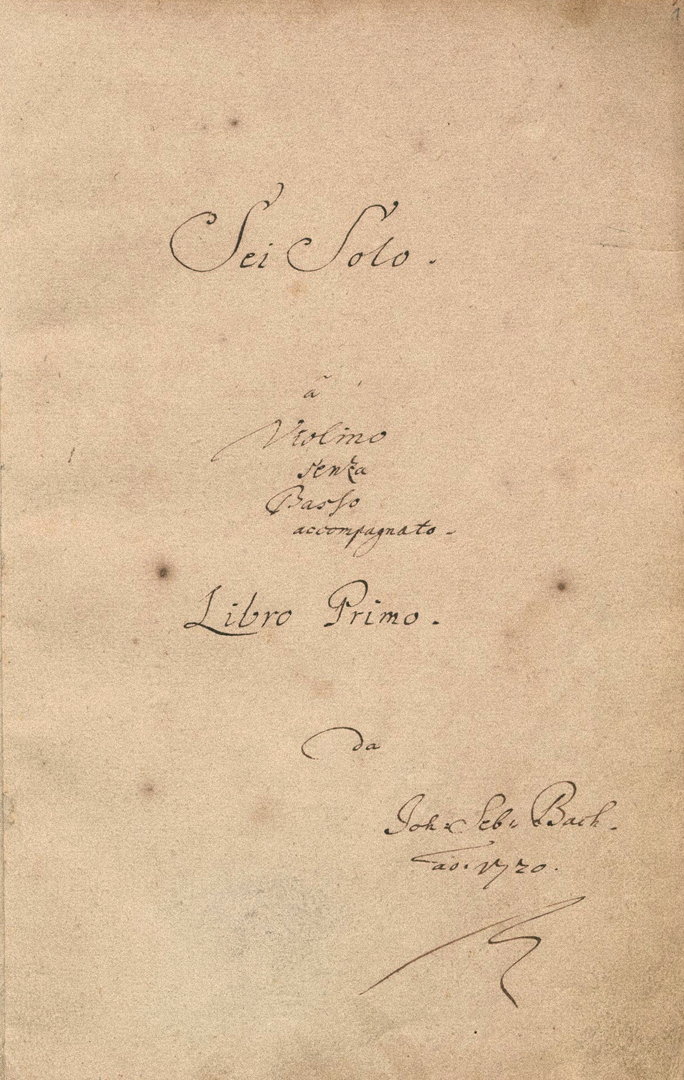 1
Sei Solo.
â
Violino
senza
Basso
accompagnato.
Libro Primo.
da
Joh: Seb: Bach.
ao. 1720.